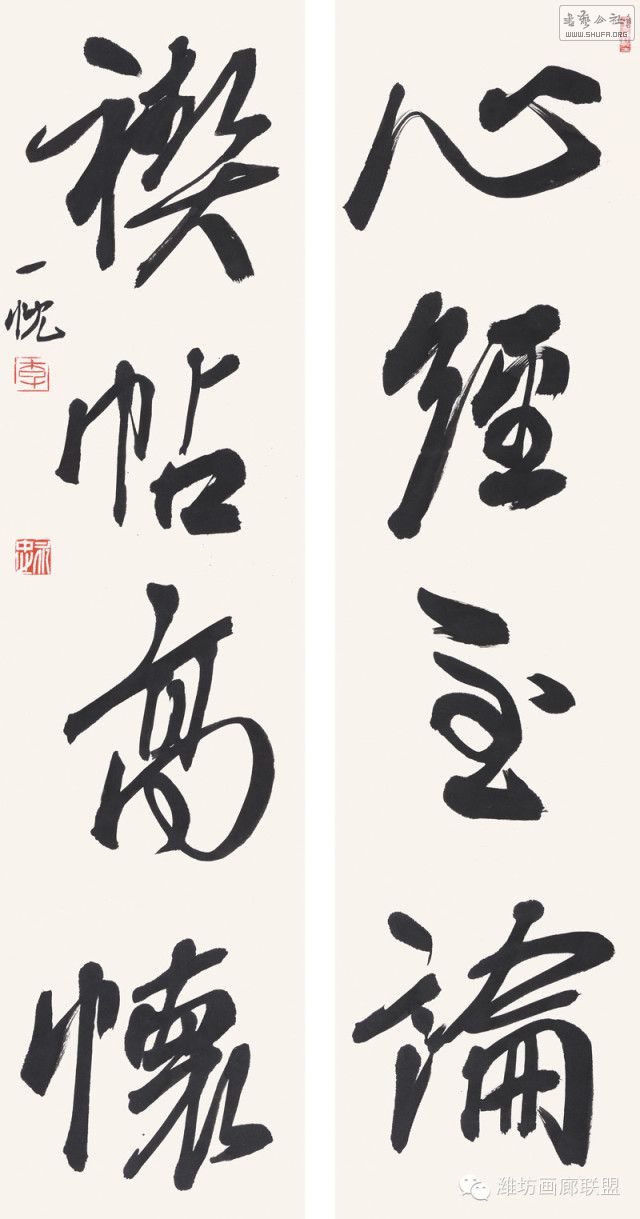 心經至論
禊帖高懷
一忱
書藝公社
WWW.SHUFA.ORG
潍坊画廊联盟